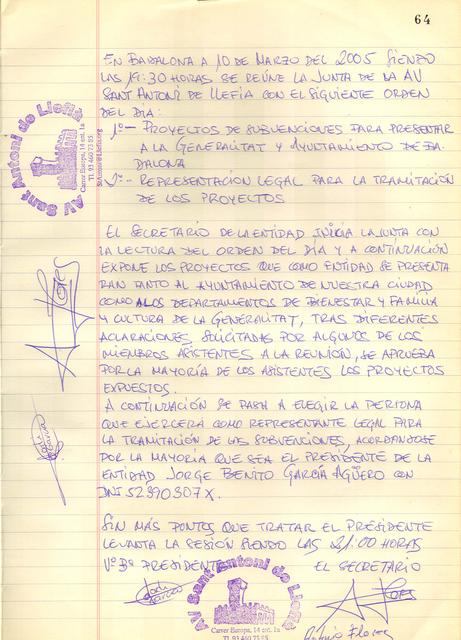 64
EN BADALONA A 10 DE MARZO DEL 2005 SIENDO
LAS 19:30 HORAS SE REÚNE LA JUNTA DE LA AV
SANT ANTONI DE LLEFIA CON EL SIGUIENTE ORDEN
DEL DIA:
1º- PROYECTOS DE SUBVENCIONES PARA PRESENTAR
A LA GENERALITAT Y AYUNTAMIENTO DE BA-
DALONA
2º- REPRESENTACION LEGAL PARA LA TRAMITACIÓN
DE LOS PROYECTOS
EL SECRETARIO DE LA ENTIDAD INICIA LA JUNTA CON
LA LECTURA DEL ORDEN DEL DIA Y A CONTINUACIÓN
EXPONE LOS PROYECTOS QUE COMO ENTIDAD SE PRESENTA
RAN TANTO AL AYUNTAMIENTO DE NUESTRA CIUDAD
COMO A LOS DEPARTAMENTOS DE BIENESTAR Y FAMILIA
Y CULTURA DE LA GENERALITAT, TRAS DIFERENTES
ACLARACIONES SOLICITADAS POR ALGUNOS DE LOS
MIEMBROS ASISTENTES A LA REUNIÓN, SE APRUEBA
POR LA MAYORÍA DE LOS ASISTENTES LOS PROYECTOS
EXPUESTOS.
A CONTINUACIÓN SE PASA A ELEGIR LA PERSONA
QUE EJERCERA COMO REPRESENTANTE LEGAL PARA
LA TRAMITACIÓN DE LAS SUBVENCIONES, ACORDANDOSE
POR LA MAYORÍA QUE SEA EL PRESIDENTE DE LA
ENTIDAD JORGE BENITO GARCÍA AGÜERO CON
DNI 52390307X.
SIN MÁS PUNTOS QUE TRATAR EL PRESIDENTE
LEVANTA LA SESIÓN SIENDO LAS 21:00 HORAS
Vº Bº PRESIDENTE EL SECRETARIO
AV Sant Antoni de Llefià
Carrer Europa, 14 ent. 1a
Tl. 93 460 73 85
Flores
AV Sant Antoni de Llefià
Carrer Europa, 14 ent. 1a
Tl. 93 460 73 85
Flores
Antonio Flores